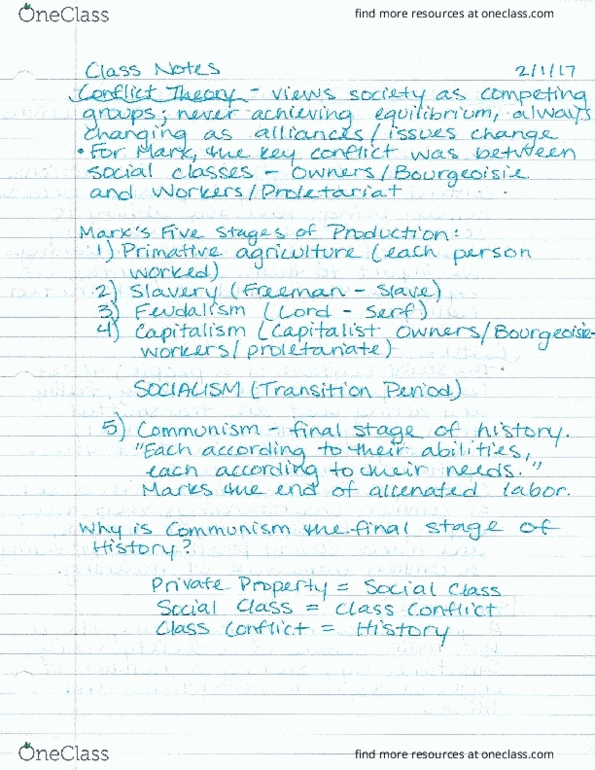 OneClass find more resources at oneclass.com
Class Notes 2/1/17
Conflict Theory - views society as competing
groups; never achieving equilibrium, always
changing as alliances/issues change
• For Mark, the key conflict was between
social classes - Owners/Bourgeoisie
and Workers/Proletariat
Mark's Five Stages of Production:
1) Primative agriculture (each person
worked)
2) Slavery (Freeman - Slave)
3) Feudalism (Lord - Serf)
4) Capitalism (Capitalist Owners/Bourgeoisie-
workers/proletariate)
SOCIALISM (Transition Period)
5) Communism - final stage of history.
"Each according to their abilities,
each according to their needs."
Marks the end of alienated labor.
Why is Communism the final stage of
History?
Private Property = Social Class
Social Class = Class Conflict
Class Conflict = History
OneClass find more resources at oneclass.com